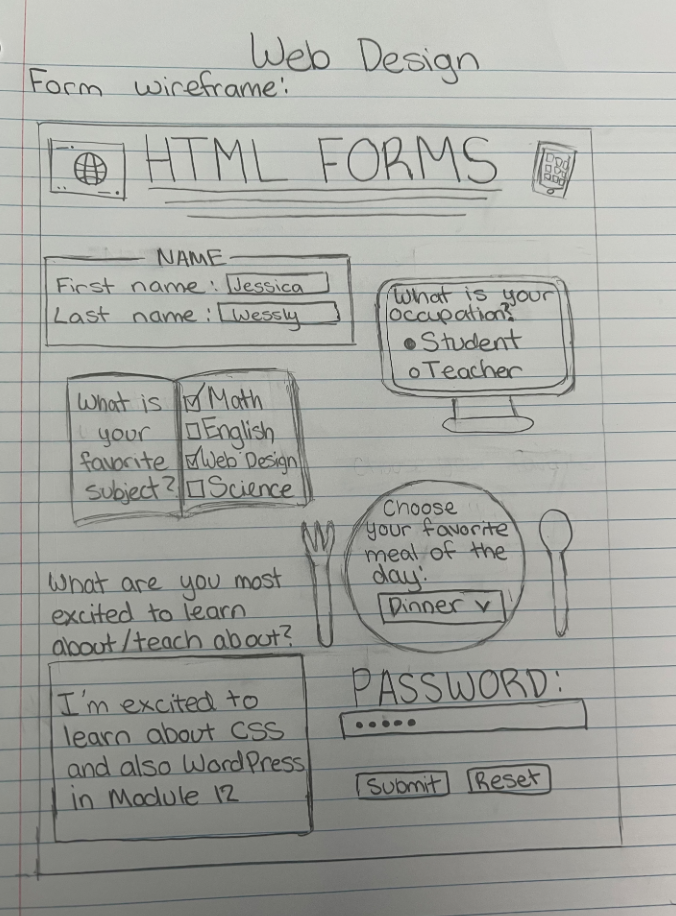 Web Design
Form wireframe:
HTML FORMS
NAME
First name: Jessica
Last name: Wessly
What is your
occupation?
Student
Teacher
What is
your
favorite
subject?
Math
English
Web Design
Science
Choose
your favorite
meal of the
day:
Dinner v
What are you most
excited to learn
about/teach about?
I'm excited to
learn about CSS
and also WordPress
in Module 12
PASSWORD:
•••••
Submit
Reset